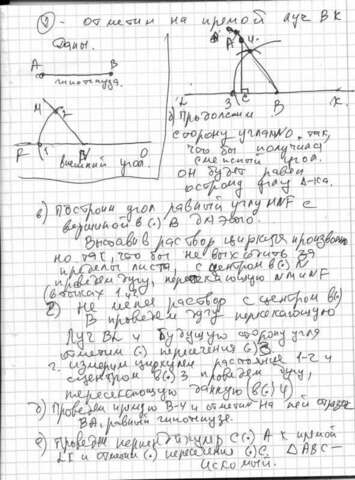 а) - отметим на прямой луч ВК
Даны.
A B
гипотенуза.
M 2
F 1 N O
внешний угол.
A 4
L 3 C B K
б) Продолжим
сторону угла NO так,
что бы получился
смежный угол.
он будет равен
острому углу Δ-ка.
в) Построим угол равный углу MNF с
вершиной в (·) В для этого.
Выставив раствор циркуля произволь
но так, что бы не выходить за
пределы листа, с центром в (·) N
проведём дугу, пересекающую NM и NF
(в точках 1 и 2)
2) Не меняя раствор с центром в (·)
В проведём дугу пересекающую
Луч BL и будущую сторону угла
отметим (·) пересечения (·) 3
г. измерим циркулем расстояние 1-2 и
с центром в (·) 3 проведём дугу,
пересекающую данную (в (·) 4)
д) Проведём прямую В-4 и отметим на ней отрезок
ВА, равный гипотенузе.
е) Проведём перпендикуляр с (·) А к прямой
LK и отметим (·) пересечения (·) С. ΔABC —
искомый.